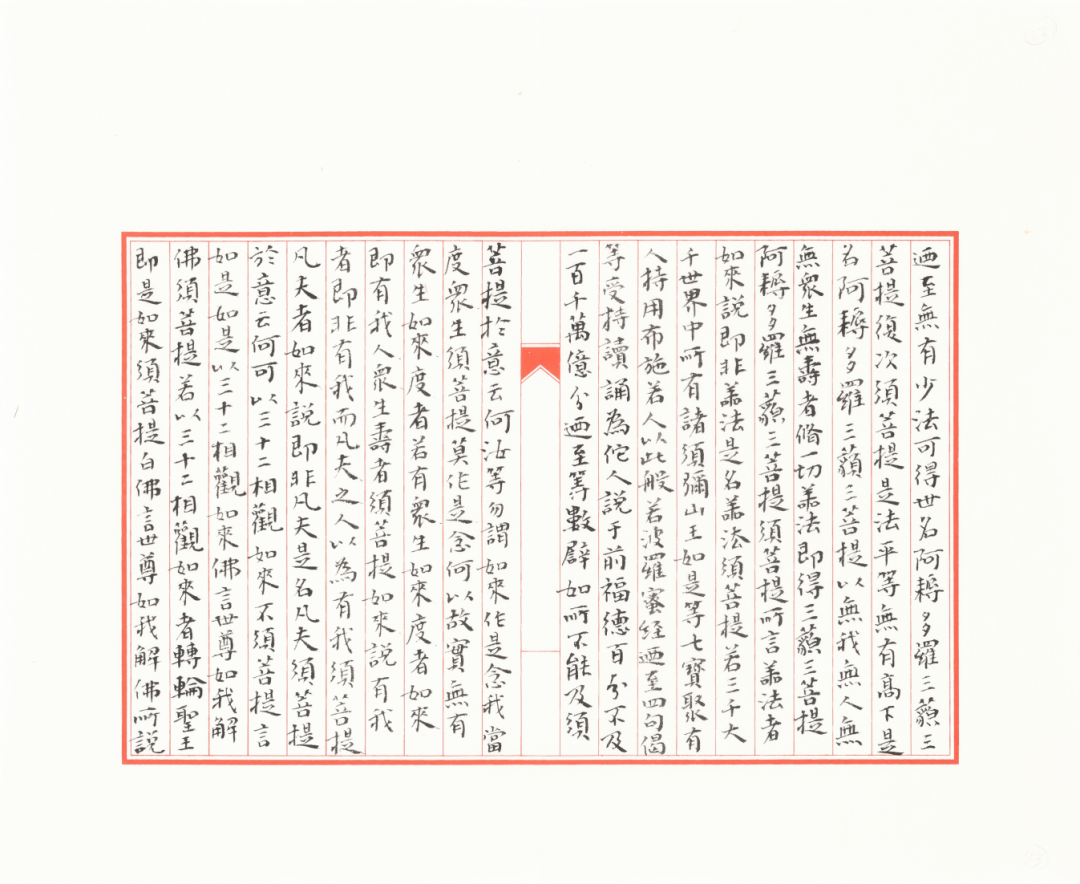 迺至無有少法可得世名阿耨多羅三藐三
菩提復次須菩提是法平等無有高下是
名阿耨多羅三藐三菩提以無我無人無
無衆生無壽者脩一切善法即得三藐三菩提
阿耨多羅三藐三菩提須菩提所言善法者
如來說即非善法是名善法須菩提若三千大
千世界中所有諸須彌山王如是等七寶聚有
人持用布施若人以此般若波羅蜜經迺至四句偈
等受持讀誦為佗人說于前福德百分不及
一百千萬億分迺至筭數譬如所不能及須
菩提於意云何汝等勿謂如來作是念我當
度衆生須菩提莫作是念何以故實無有
衆生如來度者若有衆生如來度者如來
即有我人衆生壽者須菩提如來說有我
者即非有我而凡夫之人以為有我須菩提
凡夫者如來說即非凡夫是名凡夫須菩提
於意云何可以三十二相觀如來不須菩提言
如是如是以三十二相觀如來佛言世尊如我解
佛須菩提若以三十二相觀如來者轉輪聖王
即是如來須菩提白佛言世尊如我解佛所說